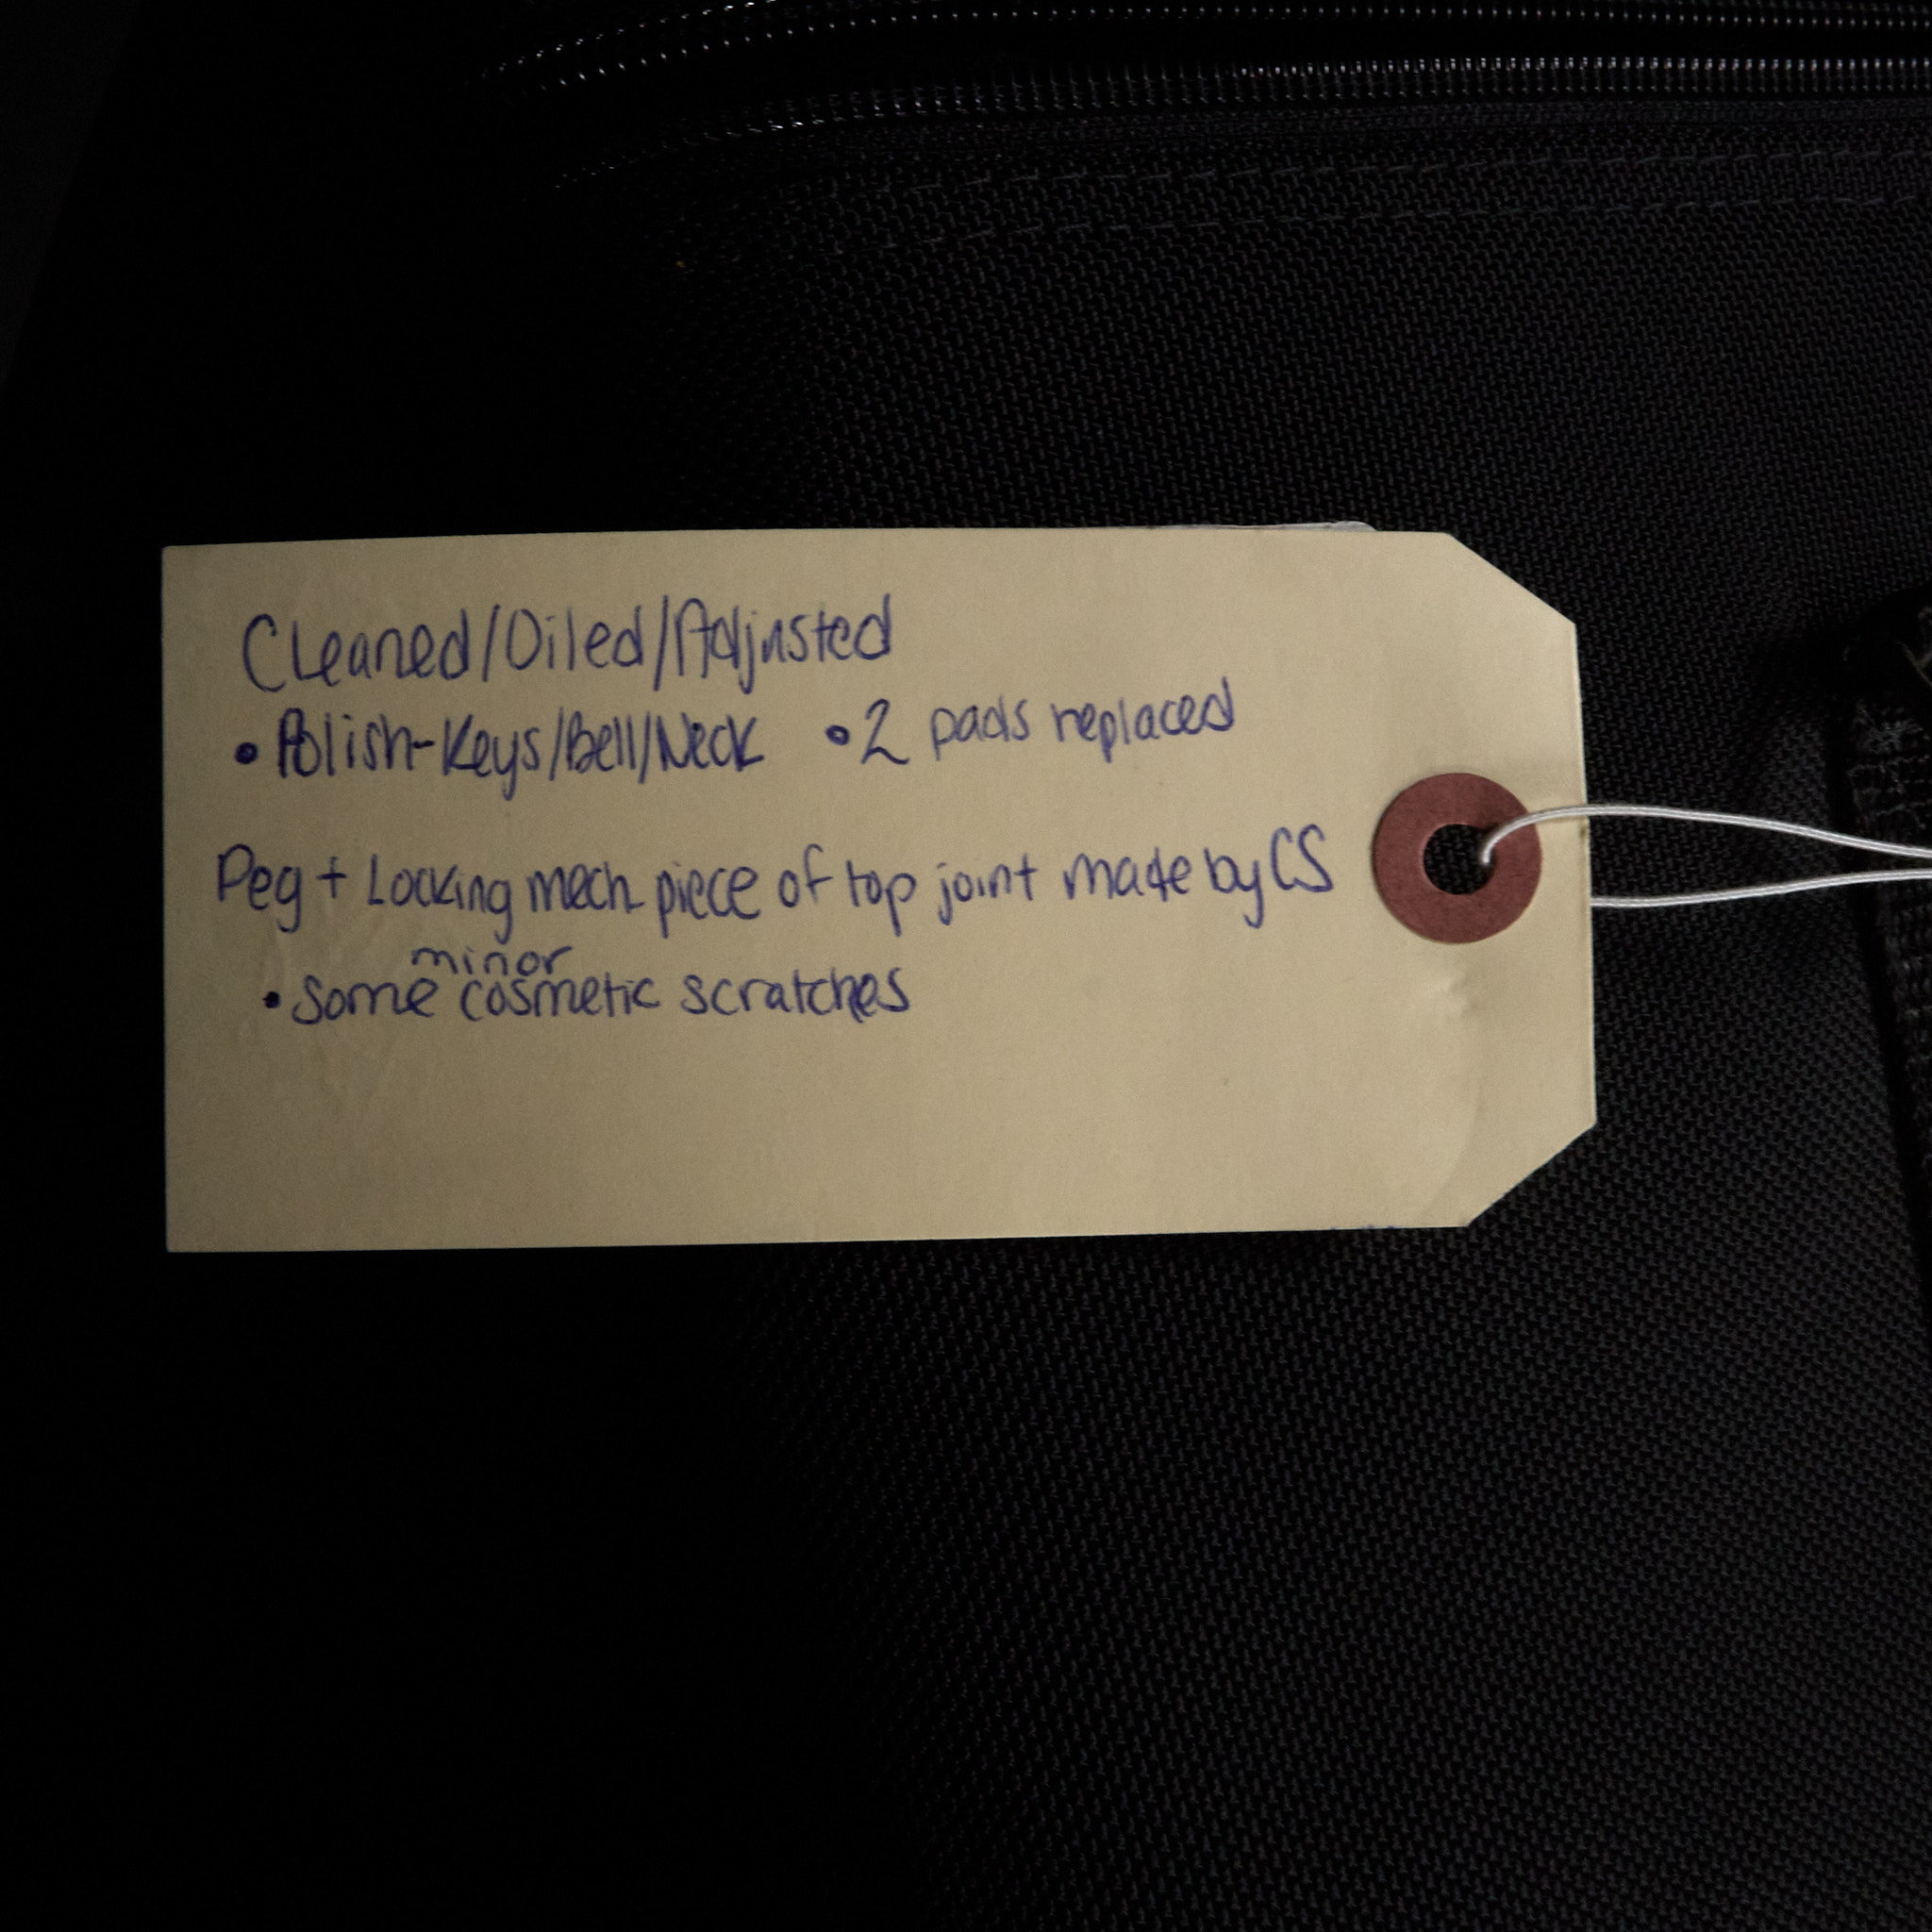 Cleaned/Oiled/Adjusted
• Polish-Keys/Bell/Neck • 2 pads replaced
Peg + Locking mech piece of top joint made by CS
minor
• Some cosmetic scratches